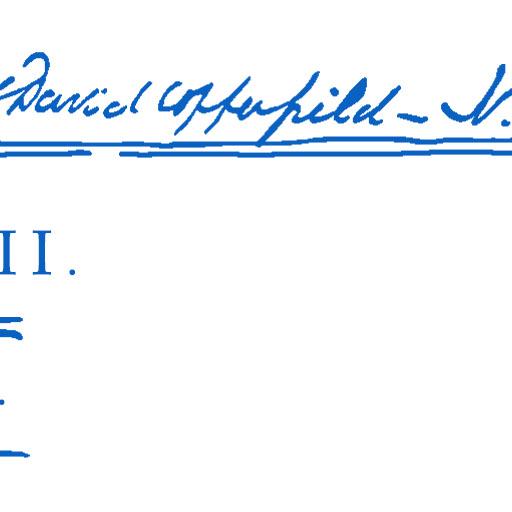 David Copperfield – N.
II.